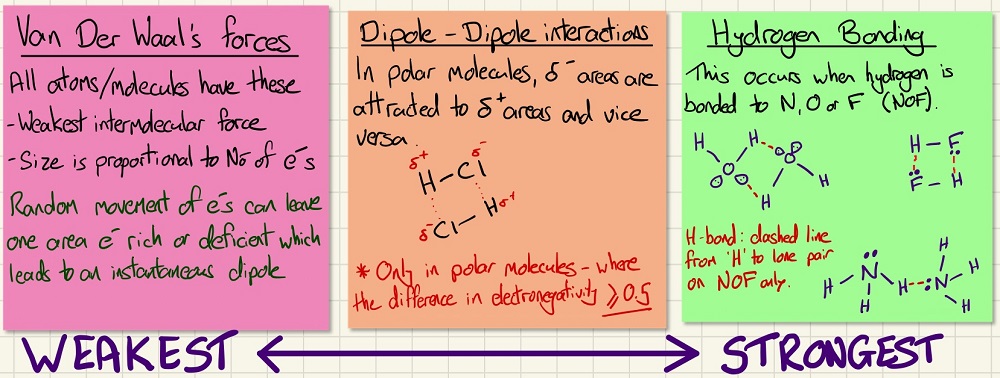 Van Der Waal's forces
All atoms/molecules have these
-Weakest intermolecular force
-Size is proportional to No of e⁻s
Random movement of e⁻s can leave
one area e⁻ rich or deficient which
leads to an instantaneous dipole
Dipole - Dipole interactions
In polar molecules, δ⁻ areas are
attracted to δ⁺ areas and vice
versa
δ⁺ δ⁻
H-Cl
H δ⁺
δ⁻ Cl
* Only in polar molecules - where
the difference in electronegativity ⩾ 0.5
Hydrogen Bonding
This occurs when hydrogen is
bonded to N, O or F (NOF).
H H O
O H H
H-F
F-H
H-bond: dashed line
from 'H' to lone pair
on NOF only.
H
H N H N H
H H
WEAKEST STRONGEST